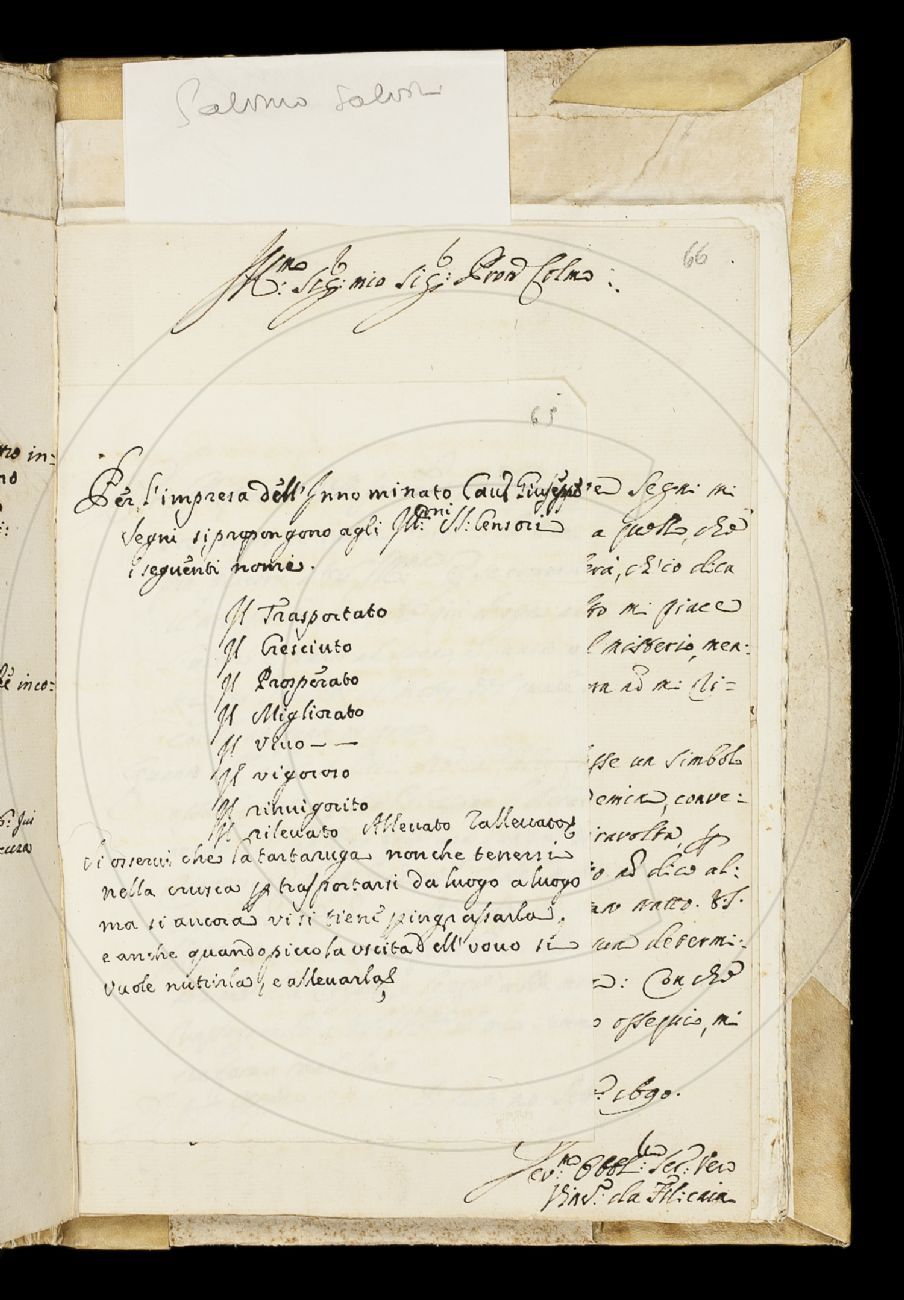 Salvino Salvini
66
Ill.mo Sig.r mio Sig.r Pron Colmo
65
Per l'impresa dell'Innominato Cau.r Giuseppe
Segni si propongono agli Ill.mi SS.i Censori
i seguenti nomi.
Il Trasportato
Il Cresciuto
Il Prosperato
Il Migliorato
Il Vivo — —
Il vigoroso
Il rinvigorito
Il rilevato Allevato Rallevato
Si osservi che la tartaruga nonche tenersi
nella crusca p trasportarsi da luogo a luogo
ma si ancora vi si tiene p ingrassarla,
e anche quando piccola uscita dell'vovo si
vuole nutrirla, e allevarla
Segni mi
a quello, che
erà, ch'io dica
mi piace
l misterio, men:
mi Ri=
sse un simbol
demia, conve:
ravolta, p
o nō dico al:
atto. V.S.
determi:
: Con che
o ossequio, mi
1690.
Dev.mo Obbl.mo Ser. Vero
Vinc.o da Filicaia
tro in:
no
inco: